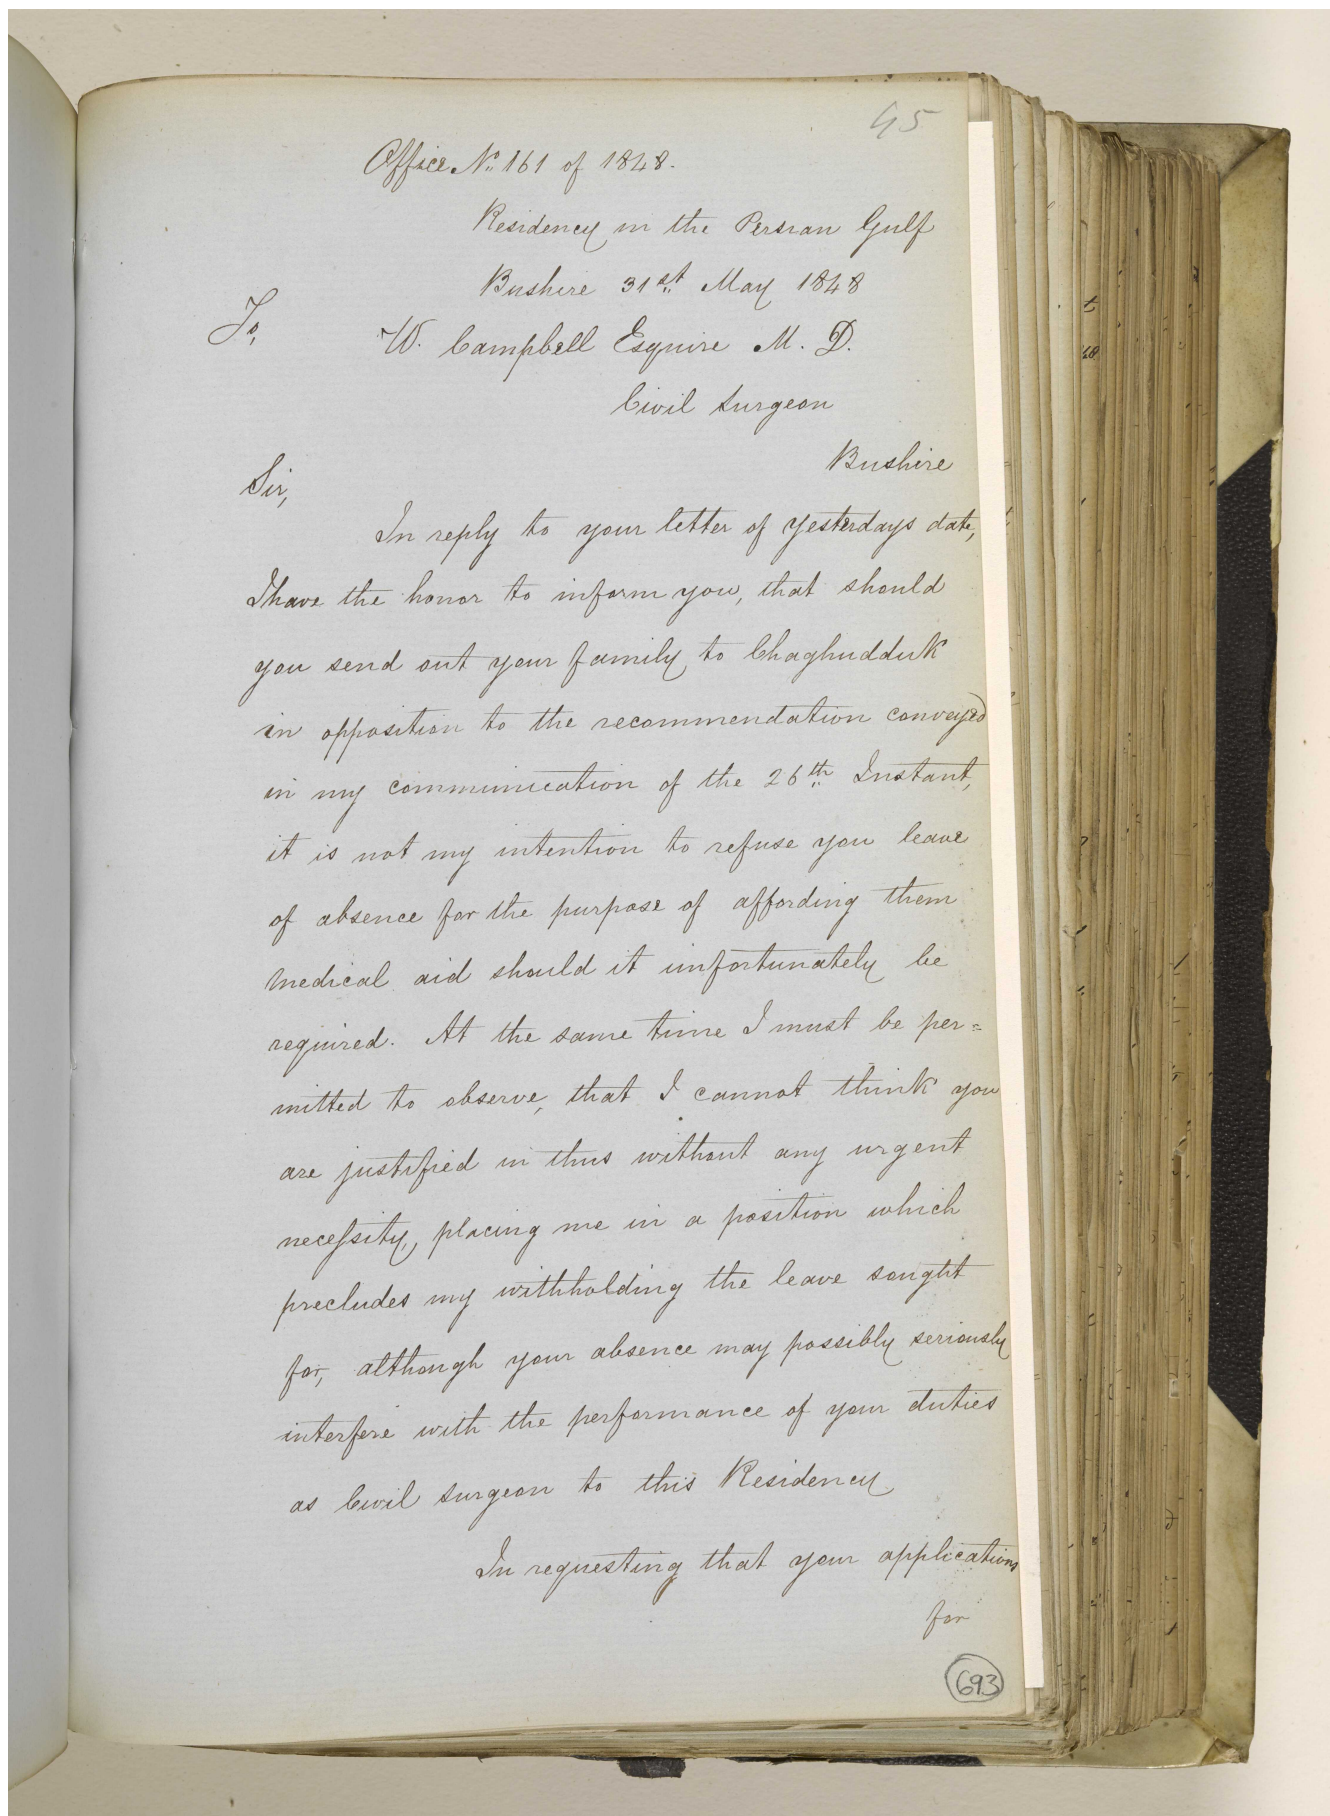 45
Office No. 161 of 1848.
Residency in the Persian Gulf
Bushire 31st May 1848
To,
W. Campbell Esquire M. D.
Civil Surgeon
Bushire
Sir,
In reply to your letter of yesterdays date,
I have the honor to inform you, that should
you send out your family to Chaghudduk
in opposition to the recommendation conveyed
in my communication of the 26th Instant,
it is not my intention to refuse you leave
of absence for the purpose of affording them
medical aid should it unfortunately be
required. At the same time I must be per=
mitted to observe, that I cannot think you
are justified in thus without any urgent
necessity, placing me in a position which
precludes my withholding the leave sought
for, although your absence may possibly seriously
interfere with the performance of your duties
as Civil Surgeon to this Residency
In requesting that your applications
for
693